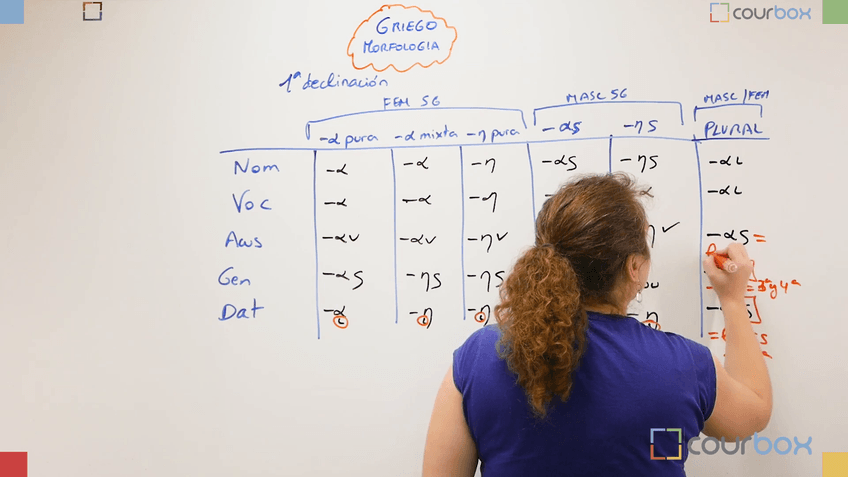 GRIEGO
MORFOLOGIA
courbox
1ª declinación
FEM SG MASC SG MASC/FEM
-α pura -α mixta -η pura -ας -ης PLURAL
Nom -α -α -η -ας -ης -αι
Voc -α -α -η -αι
Aus -αν -αν -ην -ας =
Gen -ας -ης -ης 3ª y 4ª
Dat -α ι -η ι -η ι -η
courbox